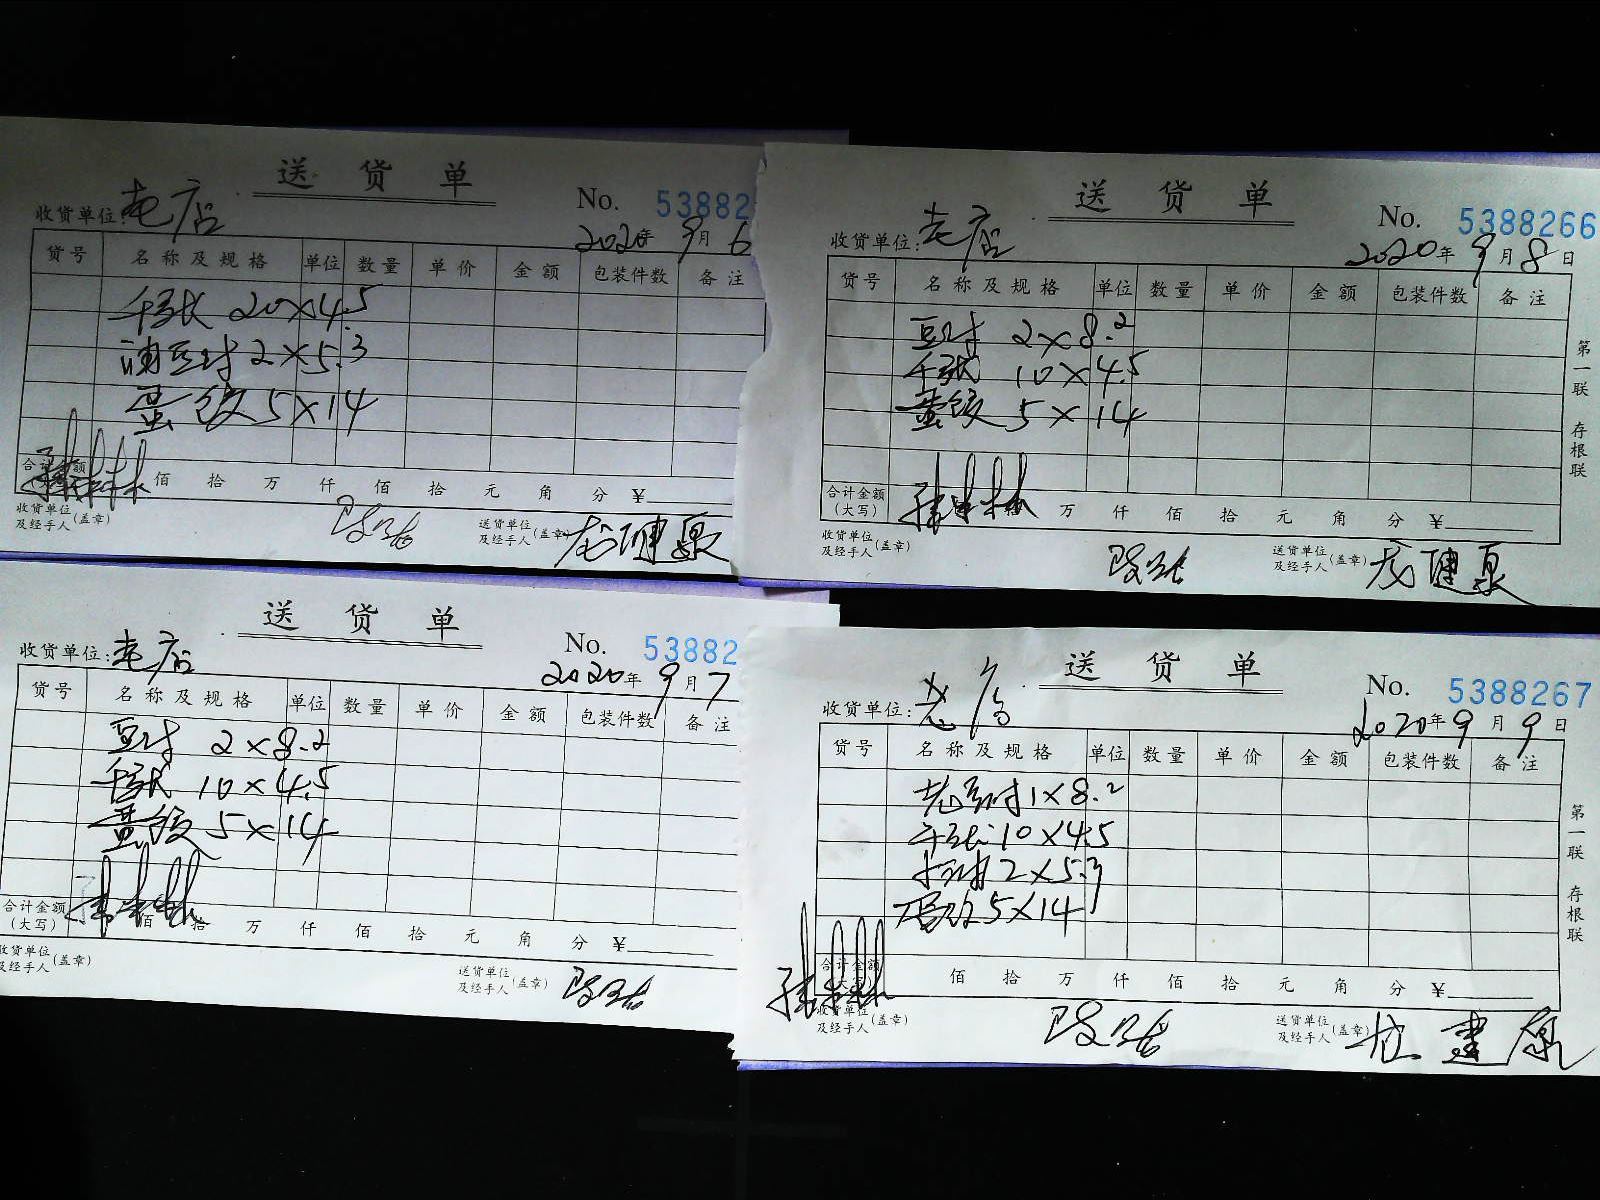 送 货 单
收货单位: 老店
No. 53882
2020年 9月 6
货号 名称及规格 单位 数量 单价 金额 包装件数 备注
千张 20×4.5
油豆付 2×5.3
蛋饺 5×14
合计金额
佰 拾 万 仟 佰 拾 元 角 分 ¥
收货单位
及经手人(盖章)
送货单位
及经手人(盖章)
送 货 单
收货单位: 老店
No. 5388266
2020年 9月 8日
货号 名称及规格 单位 数量 单价 金额 包装件数 备注
豆付 2×8.2
千张 10×4.5
蛋饺 5×14
第一联 存根联
合计金额
(大写)
万 仟 佰 拾 元 角 分 ¥
收货单位
及经手人(盖章)
送货单位
及经手人(盖章)
送 货 单
收货单位: 老店
No. 53882
2020年 9月 7
货号 名称及规格 单位 数量 单价 金额 包装件数 备注
豆付 2×8.2
千张 10×4.5
蛋饺 5×14
合计金额
(大写)
佰 拾 万 仟 佰 拾 元 角 分 ¥
收货单位
及经手人(盖章)
送货单位
及经手人(盖章)
送 货 单
收货单位: 老店
No. 5388267
2020年 9月 9日
货号 名称及规格 单位 数量 单价 金额 包装件数 备注
老豆付 1×8.2
千张 10×4.5
2×5.3
5×14
第一联 存根联
合计金额
佰 拾 万 仟 佰 拾 元 角 分 ¥
收货单位
及经手人(盖章)
送货单位
及经手人(盖章)